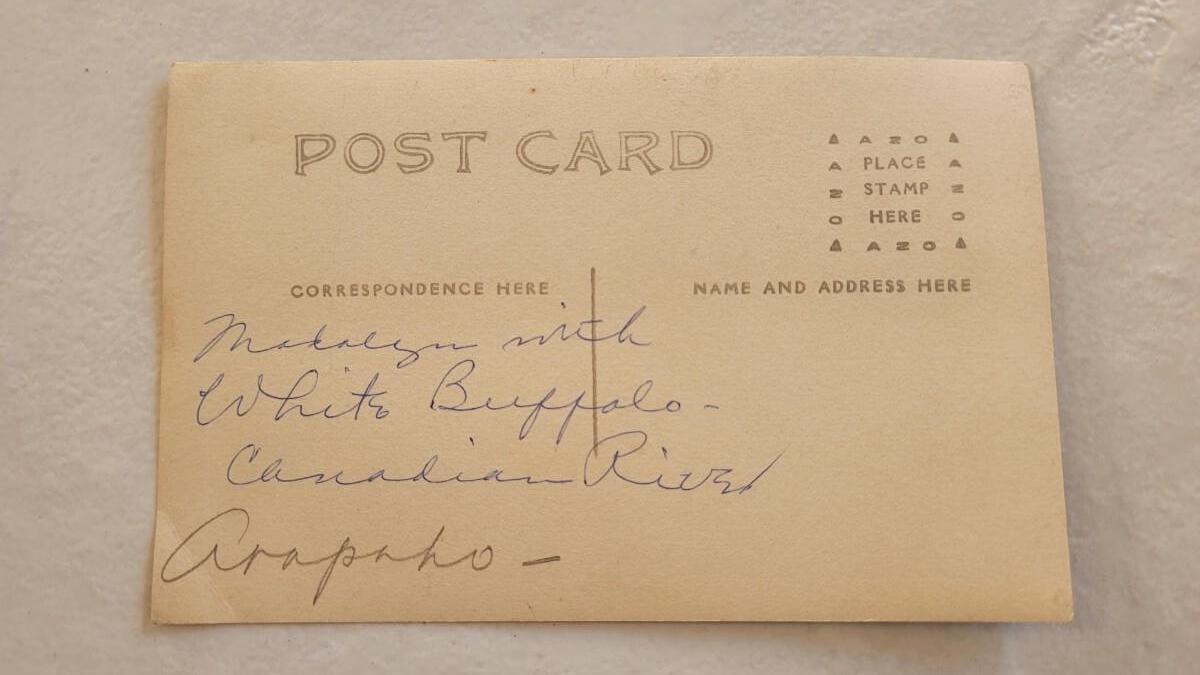 POST CARD
AZO
A PLACE A
Z STAMP Z
O HERE O
AZO
CORRESPONDENCE HERE
NAME AND ADDRESS HERE
Madalyn with
White Buffalo-
Canadian River
Arapaho -